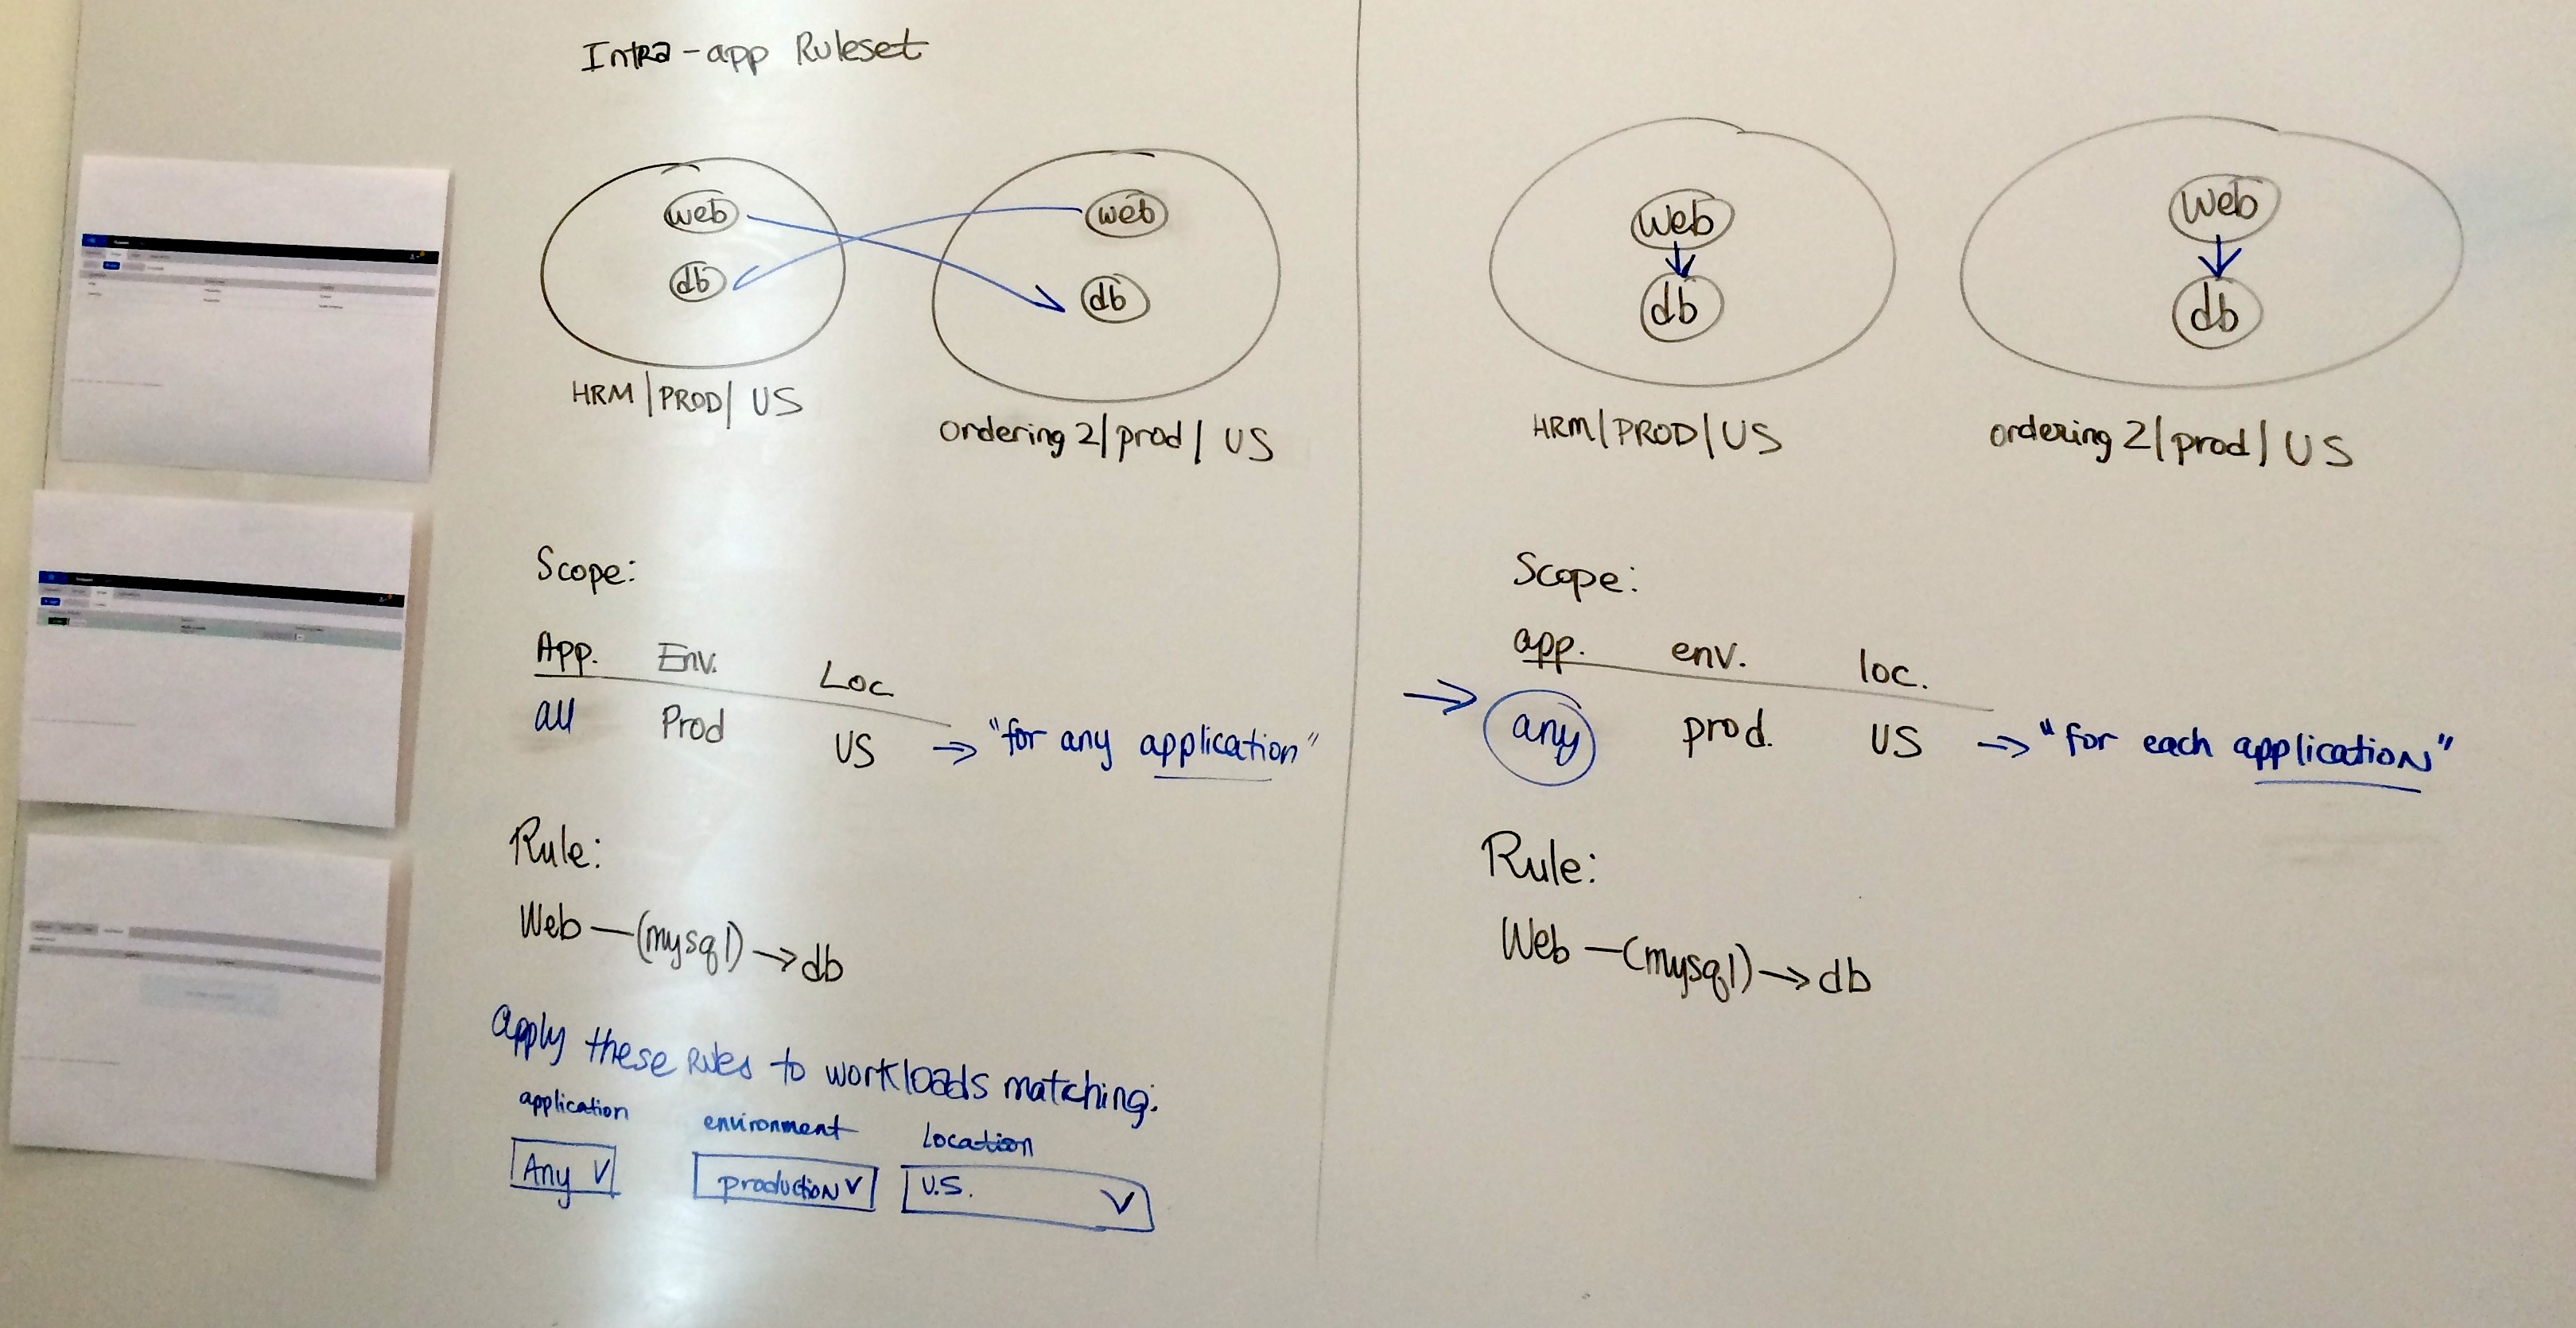 Intra-app Ruleset
web
db
HRM | PROD | US
web
db
ordering 2 | prod | US
Scope:
App. Env. Loc
all Prod US → "for any application"
Rule:
Web —(mysql)→ db
apply these rules to workloads matching:
application environment Location
Any V production V U.S. V
web
db
HRM | PROD | US
web
db
ordering 2 | prod | US
Scope:
app. env. loc.
→ any prod. US → "for each application"
Rule:
Web —(mysql)→ db